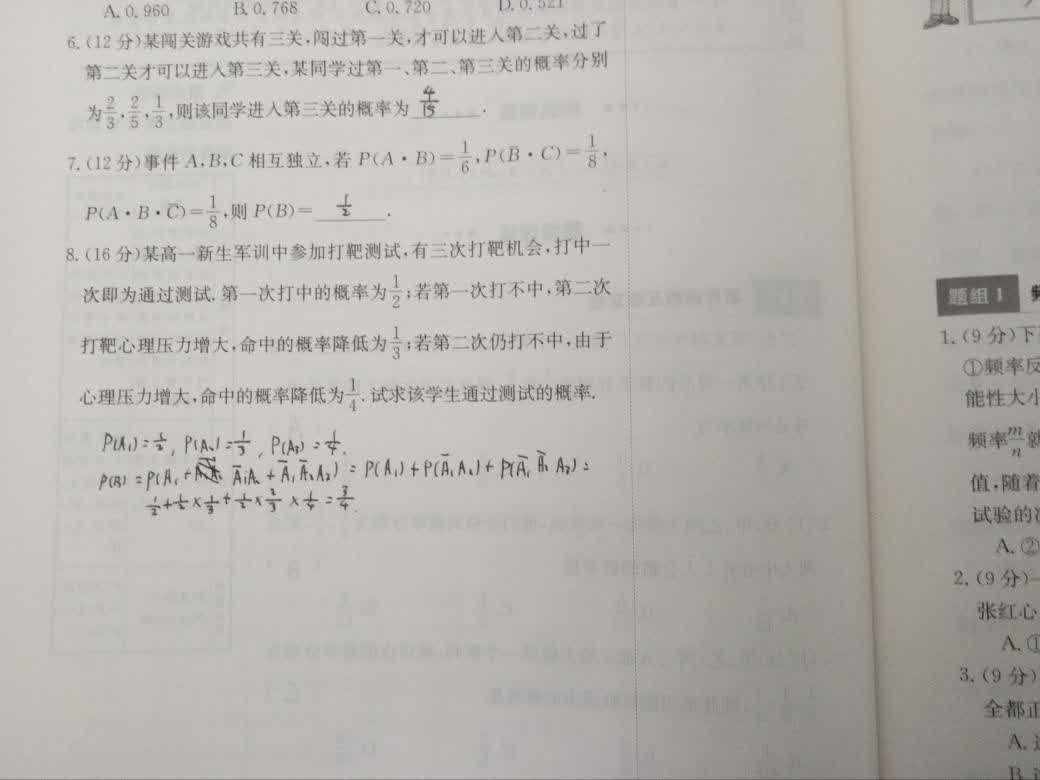 A. 0.960 B. 0.768 C. 0.720 D. 0.521
6. (12分)某闯关游戏共有三关,闯过第一关,才可以进入第二关,过了
第二关才可以进入第三关,某同学过第一、第二、第三关的概率分别
为2/3,2/5,1/3,则该同学进入第三关的概率为 4/15 .
7. (12分)事件 A,B,C 相互独立,若 P(A·B)=1/6,P(B̄·C)=1/8,
P(A·B·C̄)=1/8,则 P(B)= 1/2 .
8. (16分)某高一新生军训中参加打靶测试,有三次打靶机会,打中一
次即为通过测试.第一次打中的概率为1/2;若第一次打不中,第二次
打靶心理压力增大,命中的概率降低为1/3;若第二次仍打不中,由于
心理压力增大,命中的概率降低为1/4.试求该学生通过测试的概率.
P(A₁)=1/2, P(A₂)=1/3, P(A₃)=1/4.
P(B)=P(A₁+Ā₁A₂+Ā₁Ā₂A₃)=P(A₁)+P(Ā₁A₂)+P(Ā₁Ā₂A₃)=
1/2+1/2×1/3+1/2×2/3×1/4=3/4
题组1
1. (9分)下
①频率反
能性大小
频率m/n就
值,随着
试验的次
A. ②
2. (9分)一
张红心
A. ①
3. (9分)
全都正
A.
B.